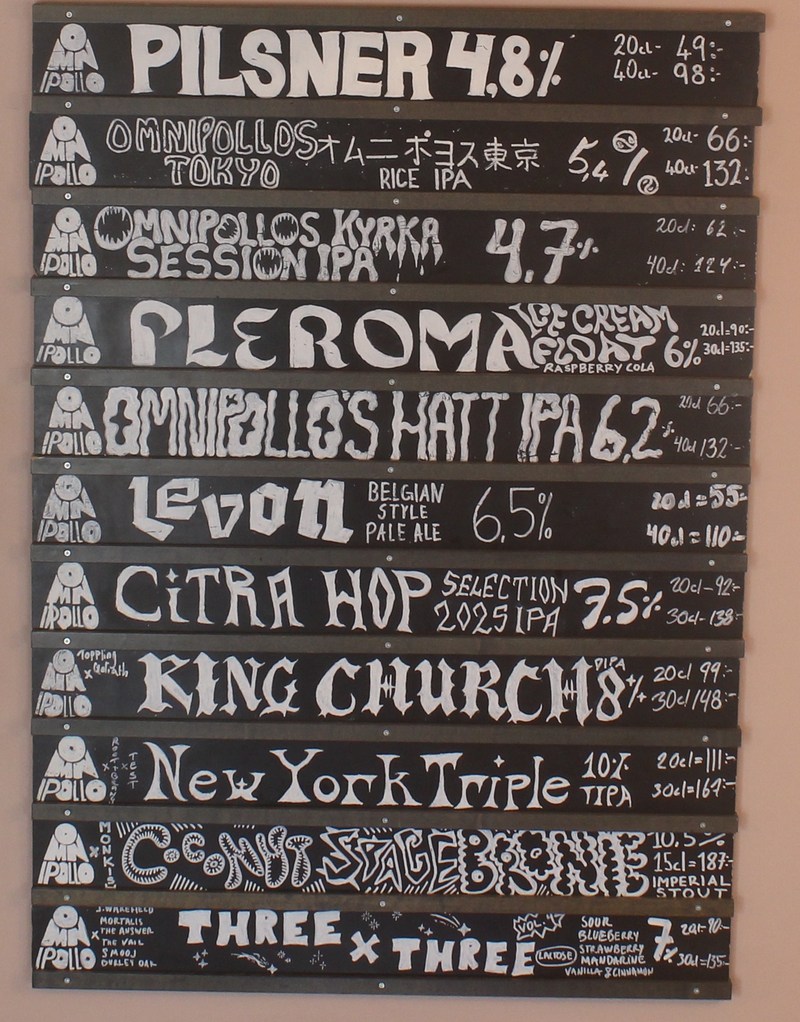 OMNIPOLLO PILSNER 4,8% 20cl- 49:-
40cl- 98:-
OMNIPOLLO OMNIPOLLOS TOKYO オムニポヨス東京 RICE IPA 5,4% 20cl- 66:-
40cl- 132:-
OMNIPOLLO OMNIPOLLOS KYRKA SESSION IPA 4,7% 20cl: 62:-
40cl: 124:-
OMNIPOLLO PLEROMA ICE CREAM FLOAT RASPBERRY COLA 6% 20cl=90:-
30cl=135:-
OMNIPOLLO OMNIPOLLO'S HATT IPA 6,2% 20cl 66:-
40cl 132:-
OMNIPOLLO Levon BELGIAN STYLE PALE ALE 6,5% 20cl=55:-
40cl=110:-
OMNIPOLLO CiTRA HOP SELECTION 2025 IPA 7.5% 20cl-92:-
30cl-138:-
OMNIPOLLO x Toppling Goliath KING CHURCH DIPA 8% 20cl 99:-
30cl 148:-
OMNIPOLLO New York Triple 10% TIPA 20cl=111:-
30cl=167:-
OMNIPOLLO x MONKIS COCONUT SPACE BROWNIE 10,5%
15cl=187:-
IMPERIAL STOUT
OMNIPOLLO x J.WAKEFIELD
MORTALIS
THE ANSWER
THE VEIL
SMOOJ
DURLEY OAK
THREE X THREE VOL. LACTOSE
SOUR
BLUEBERRY
STRAWBERRY
MANDARINE
VANILLA & CINNAMON
7% 20cl-90:-
30cl=135:-